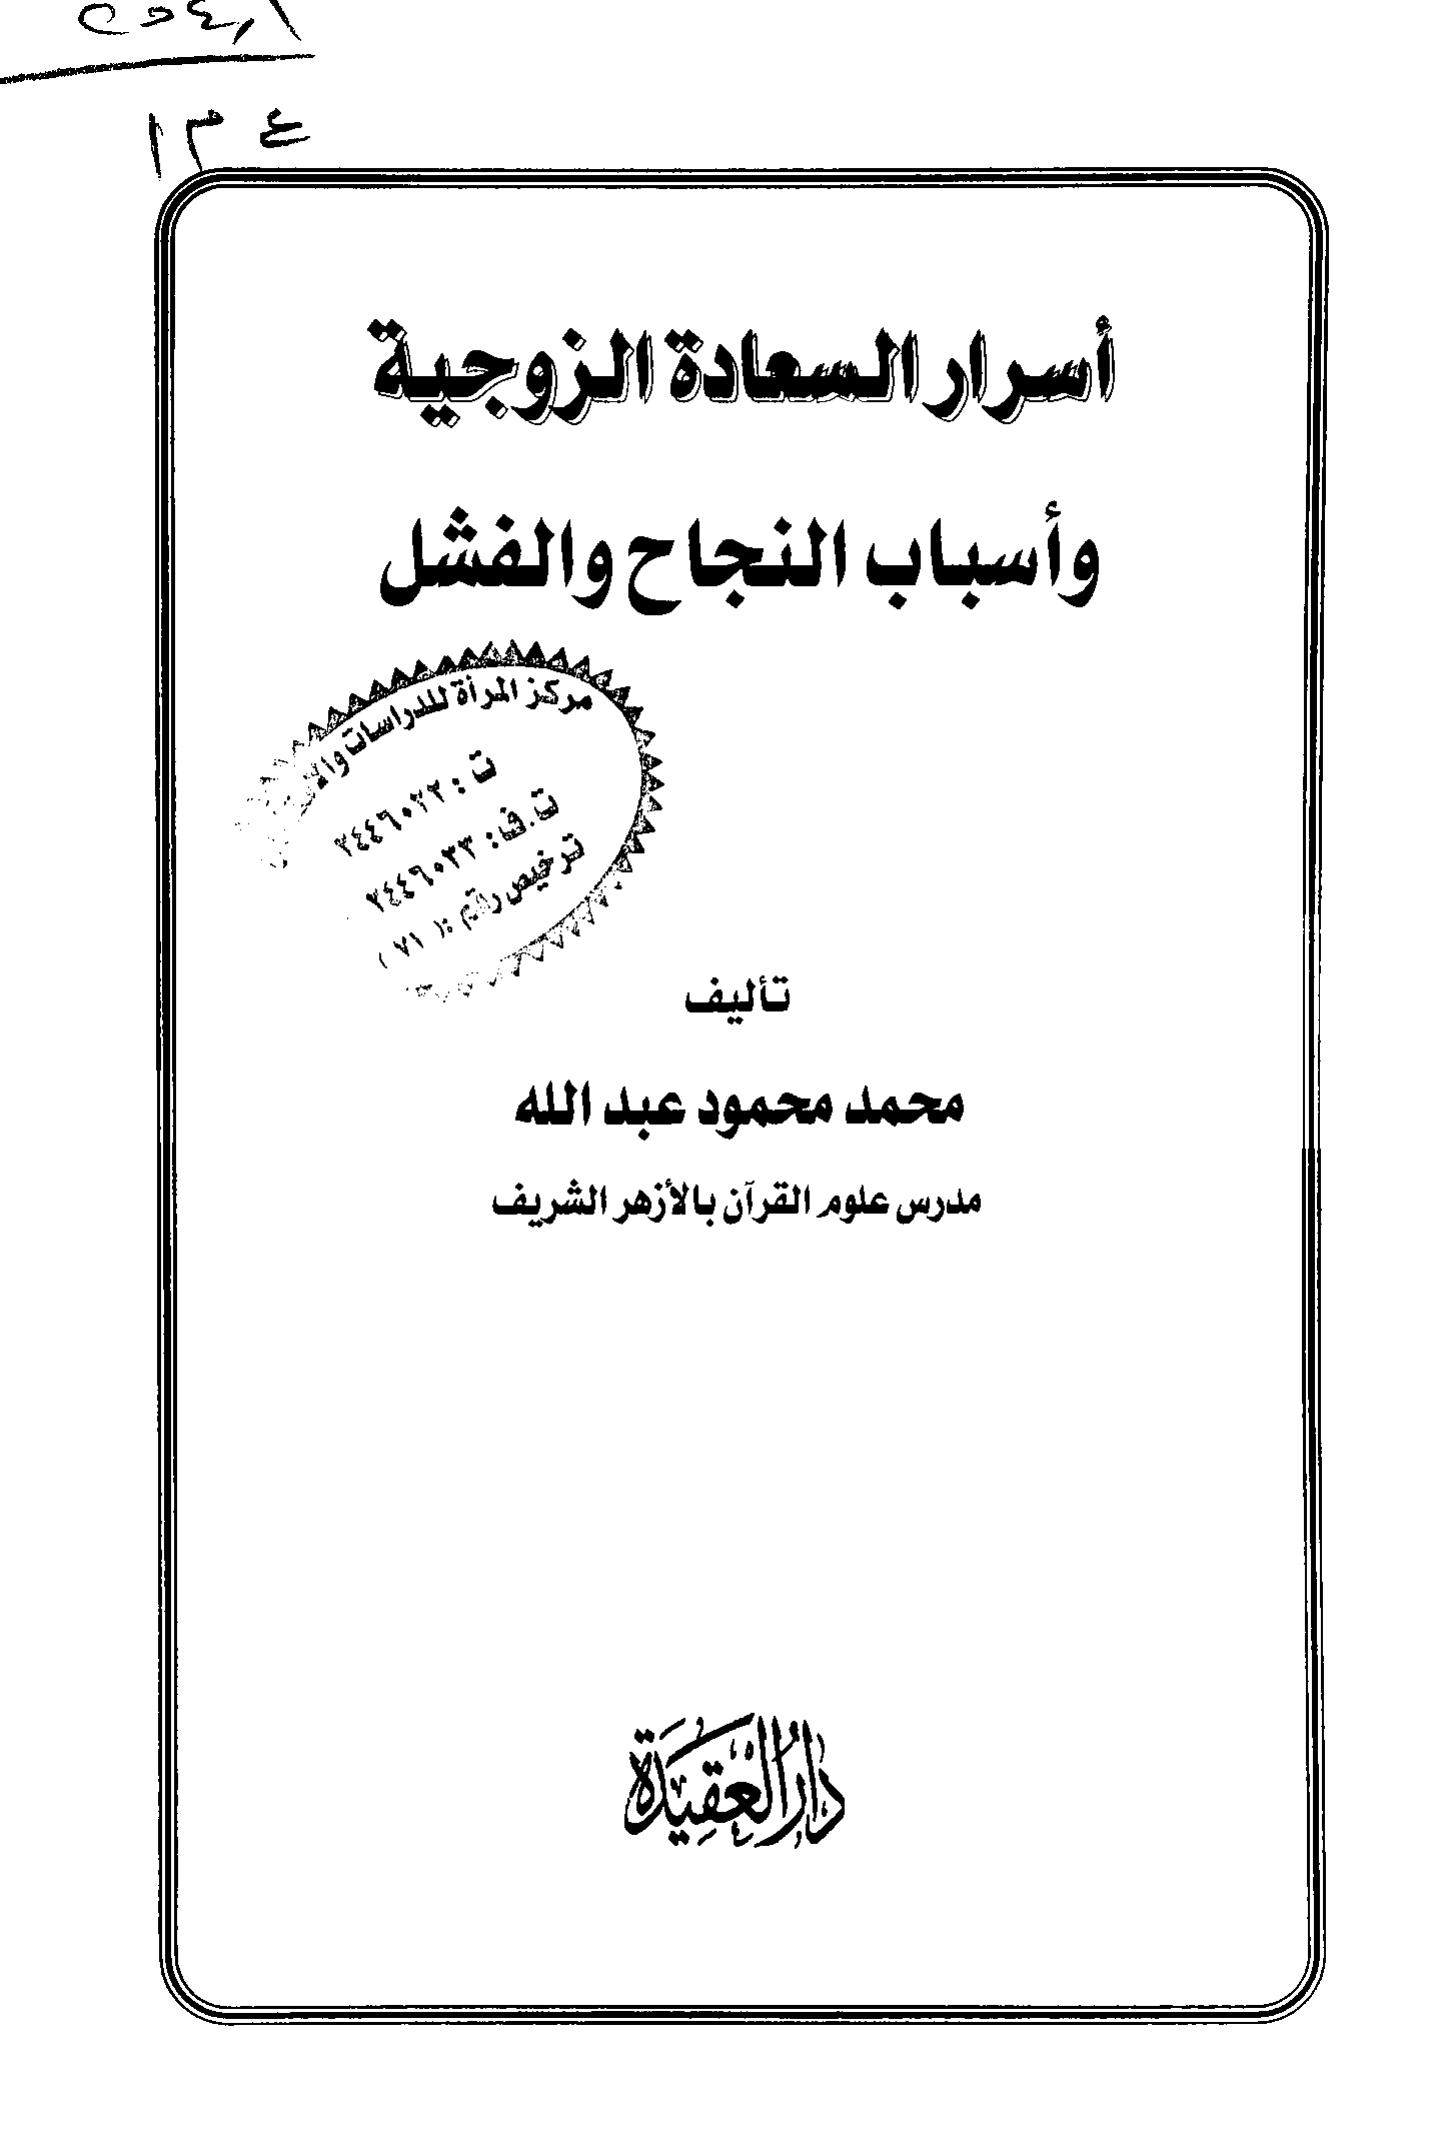 ١٣٤
أسرار السعادة الزوجية
وأسباب النجاح والفشل
مركز المرأة للدراسات
ت : ٢٤٤٦٠٢٢
ت.ف: ٢٤٤٦٠٣٣
ترخيص رقم :( ٧١ )
تأليف
محمد محمود عبد الله
مدرس علوم القرآن بالأزهر الشريف
دَارُ الْعَقِيدَة